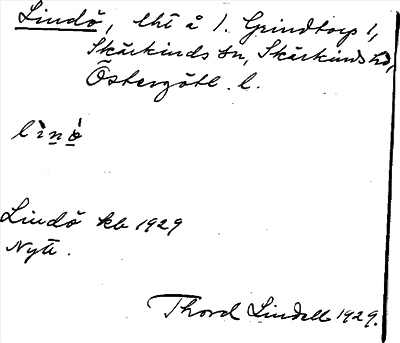 Lindö, lht å 1. Grindtorp 1,
Skärkinds sn, Skärkinds hd,
Östergötl. l.
Lindö kb 1929
Nytt.
Thord Lindell 1929.